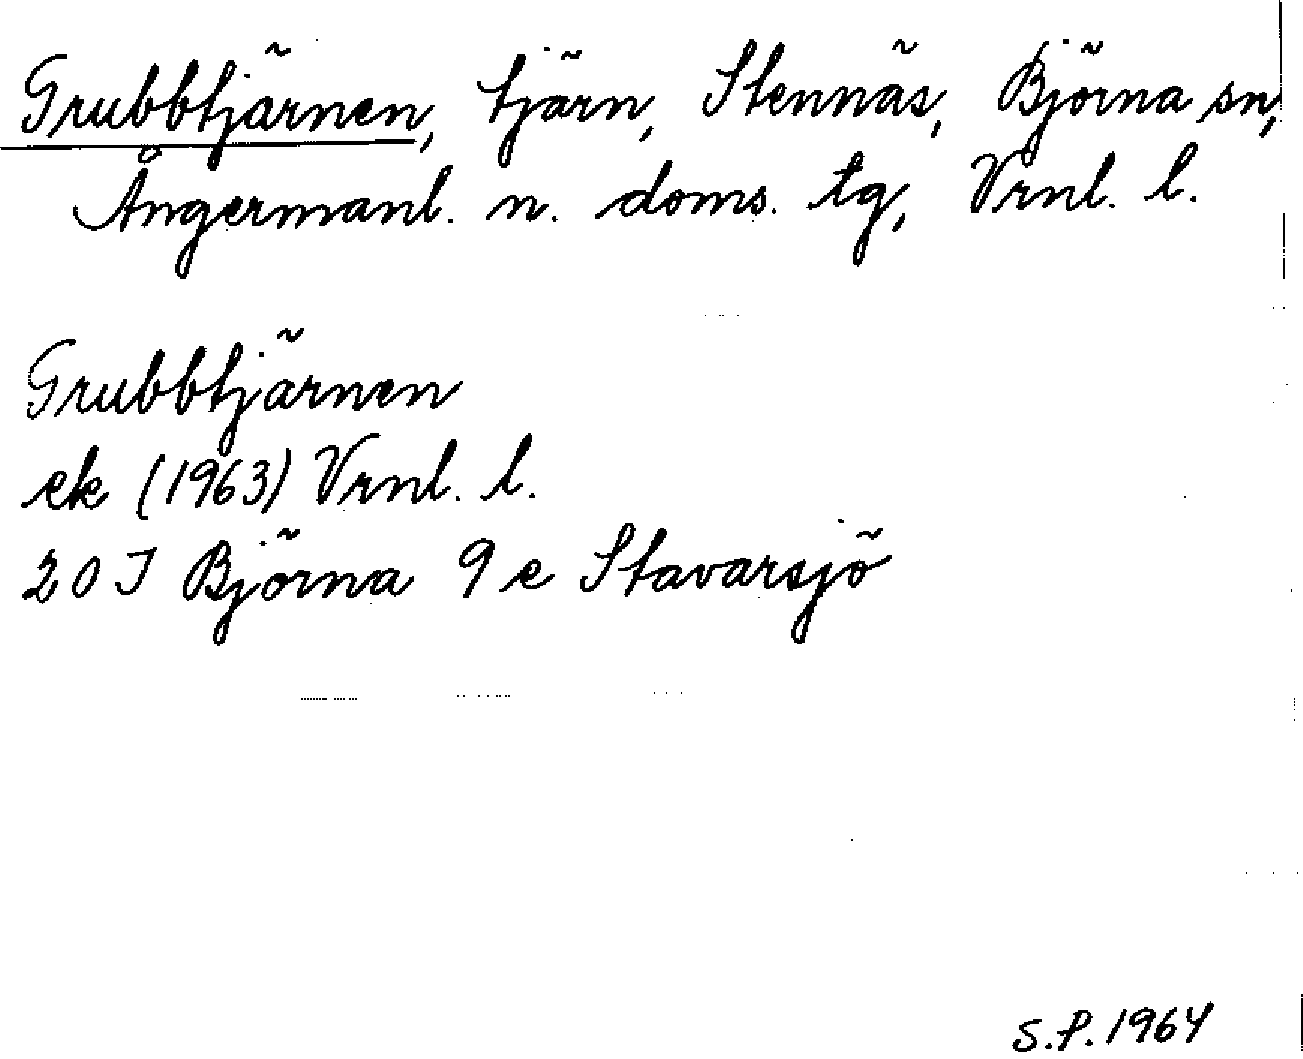 Grubbtjärnen, tjärn, Stennäs, Björna sn,
Ångermanl. n. doms. tg, Vrnl. l.
Grubbtjärnen
ek (1963) Vrnl. l.
20 J Björna 9 e Stavarsjö
S.P. 1964